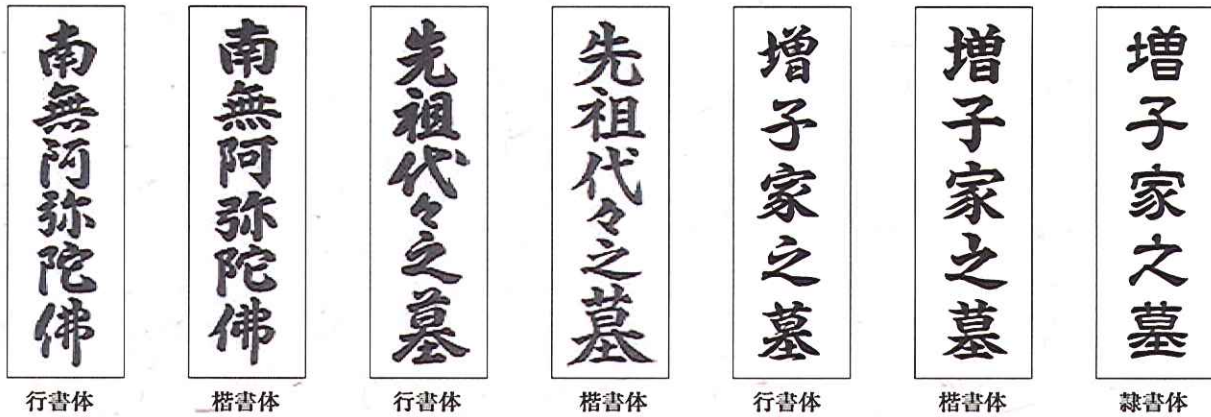 南無阿弥陀佛
行書体
南無阿弥陀佛
楷書体
先祖代々之墓
行書体
先祖代々之墓
楷書体
増子家之墓
行書体
増子家之墓
楷書体
増子家之墓
隷書体